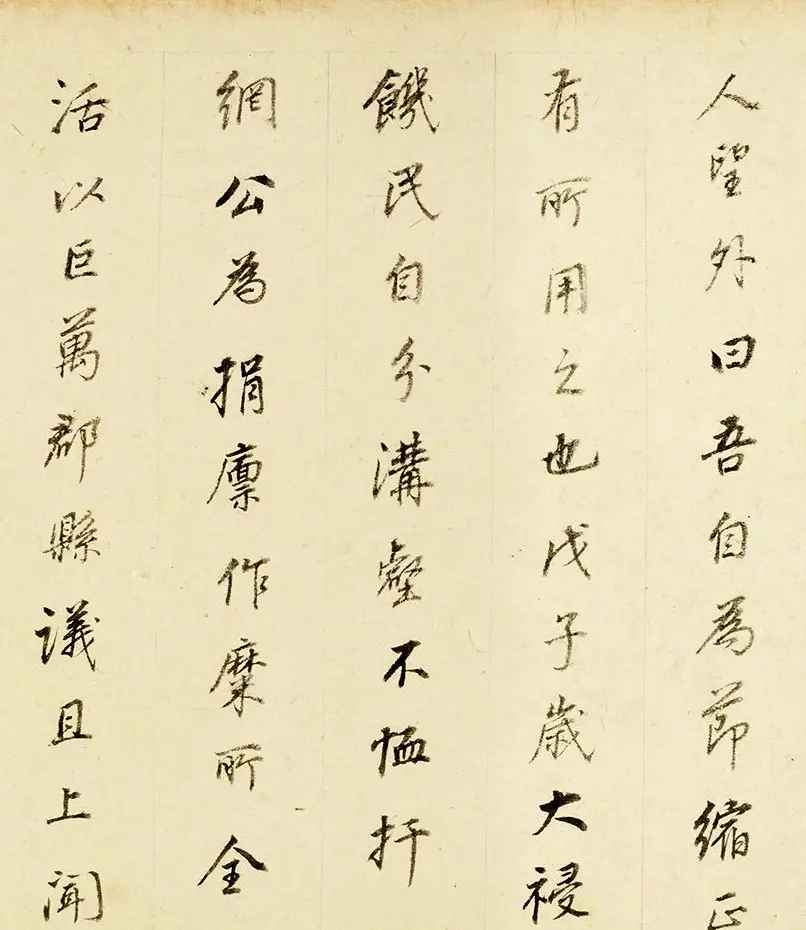 人望外曰吾自為節縮正
有所用之也戊子歲大祲
饑民自分溝壑不恤扞
網公為捐廩作糜所全
活以巨萬郡縣議且上聞